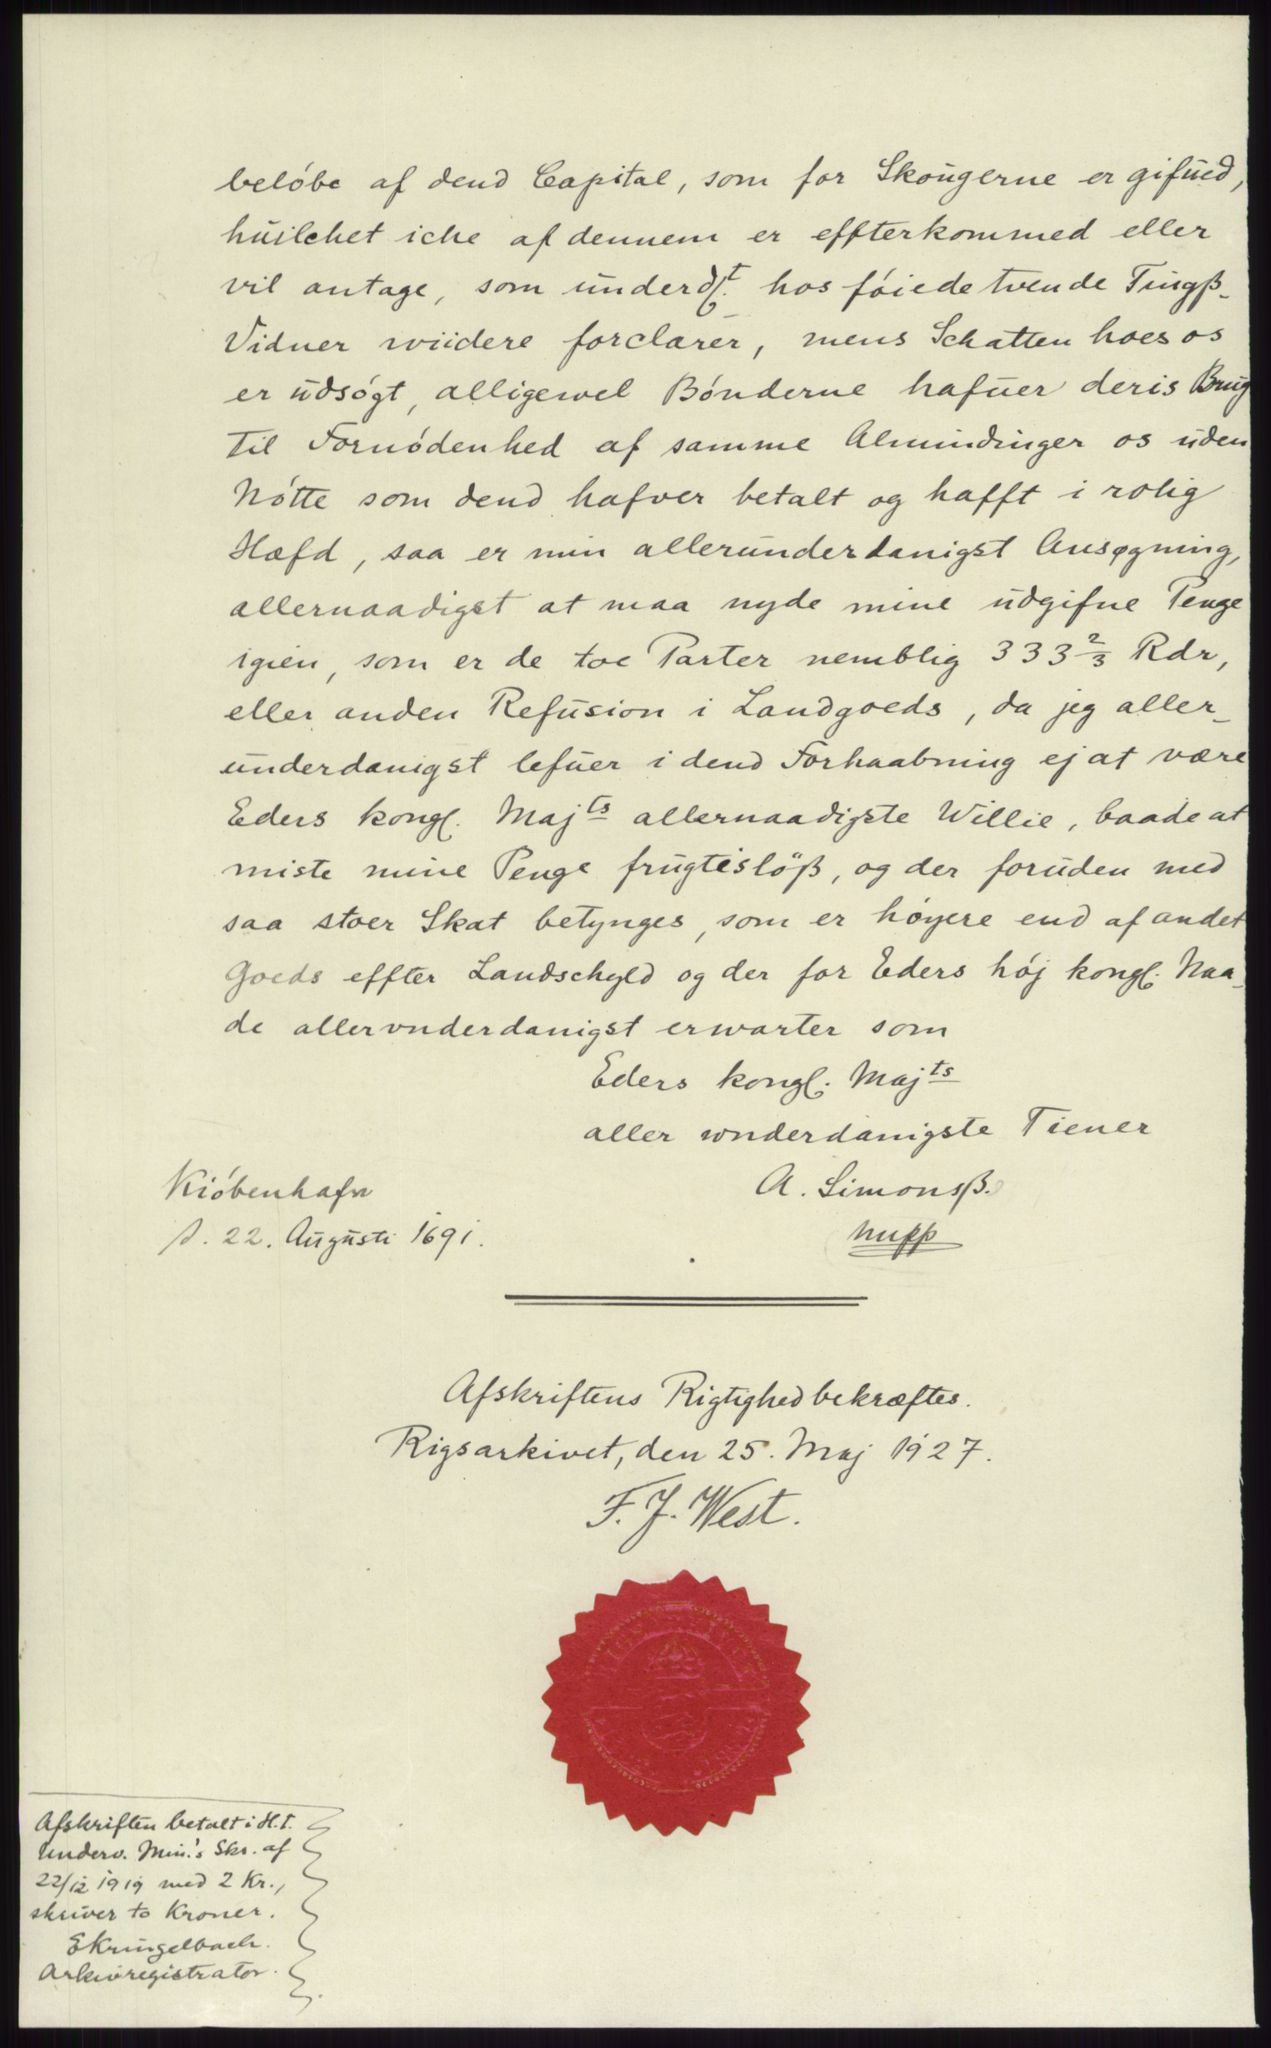 belóbe af dend Capital, som for Skougerne er gifued,
huilchet iche af dennem er effterkommed eller
vil antage, som underdt. hos fóiede tvende Tingß-
Vidner wiidere forclarer, mens Schatten hoes os
er udsógt, alligewel Bónderne hafuer deris Brug
til Fornódenhed af samme Almindinger os uden
Nótte som dend hafver betalt og hafft i rolig
Hæfd, saa er min allerunderdanigst Ansøgning,
allernaadigst at maa nyde mine udgifne Penge
igien, som er de toe Parter nemblig 333 2/3 Rdr,
eller anden Refusion i Landgoeds, da jeg aller-
underdanigst lefuer i dend Forhaabning ej at være
Eders kongl. Majts allernaadigste Willie, baade at
miste mine Penge frugtislöß, og der foruden med
saa stoer Skat betynges, som er hóyere end af andet
Goeds effter Landschyld og der for Eders hój kongl. Naa-
de allervnderdanigst erwarter som
Eders kongl. Majts
aller wnderdanigste Tiener
Kióbenhafn
A. Simonsß.
d. 22. Augusti 1691.
mupp
Afskriftens Rigtighed bekræftes.
Rigsarkivet, den 25. Maj 1927.
F. J. West.
Afskriften betalt i H. t.
Underv. Min.'s Skr. af
22/12 1919 med 2 Kr.,
skriver to Kroner.
EKringelbach.
Arkivregistrator.